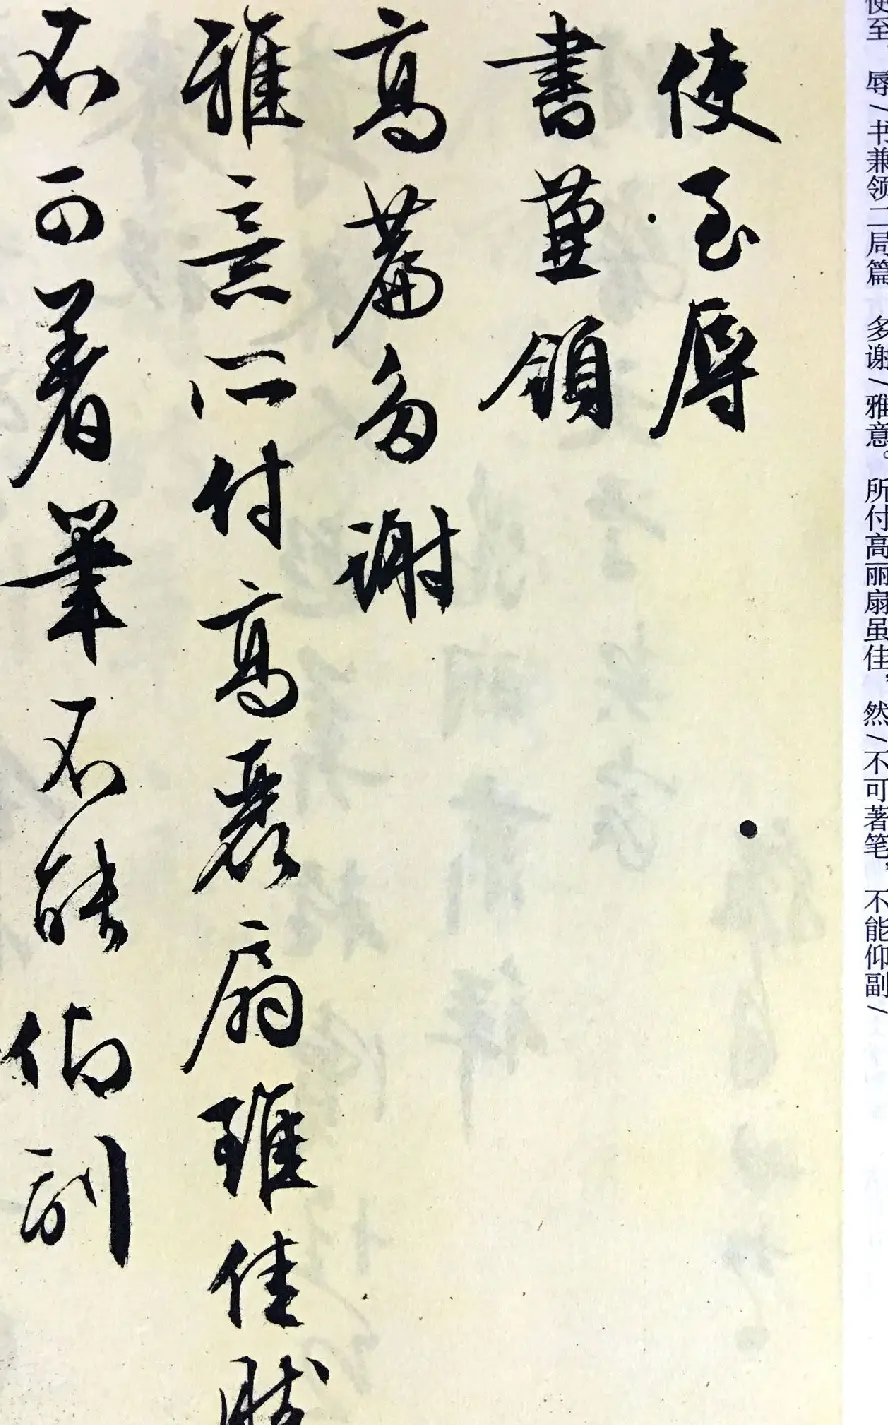 使至 辱/书兼领二局篇 多谢/雅意。所付高丽扇虽佳，然/不可著笔，不能仰副/
使至辱
書兼領
高篇多謝
雅意所付高麗扇雖佳然
不可著筆不能仰副